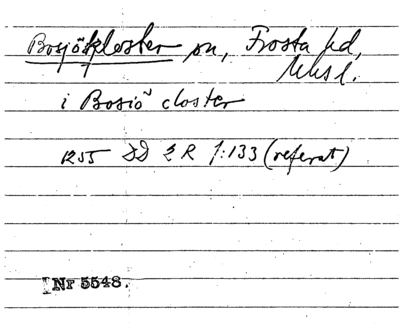 Bosjökloster sn, Frosta hd,
Mhsl.
i Bosiö closter
1255 DD 2 R 1:133 (referat)
Nr 5548.